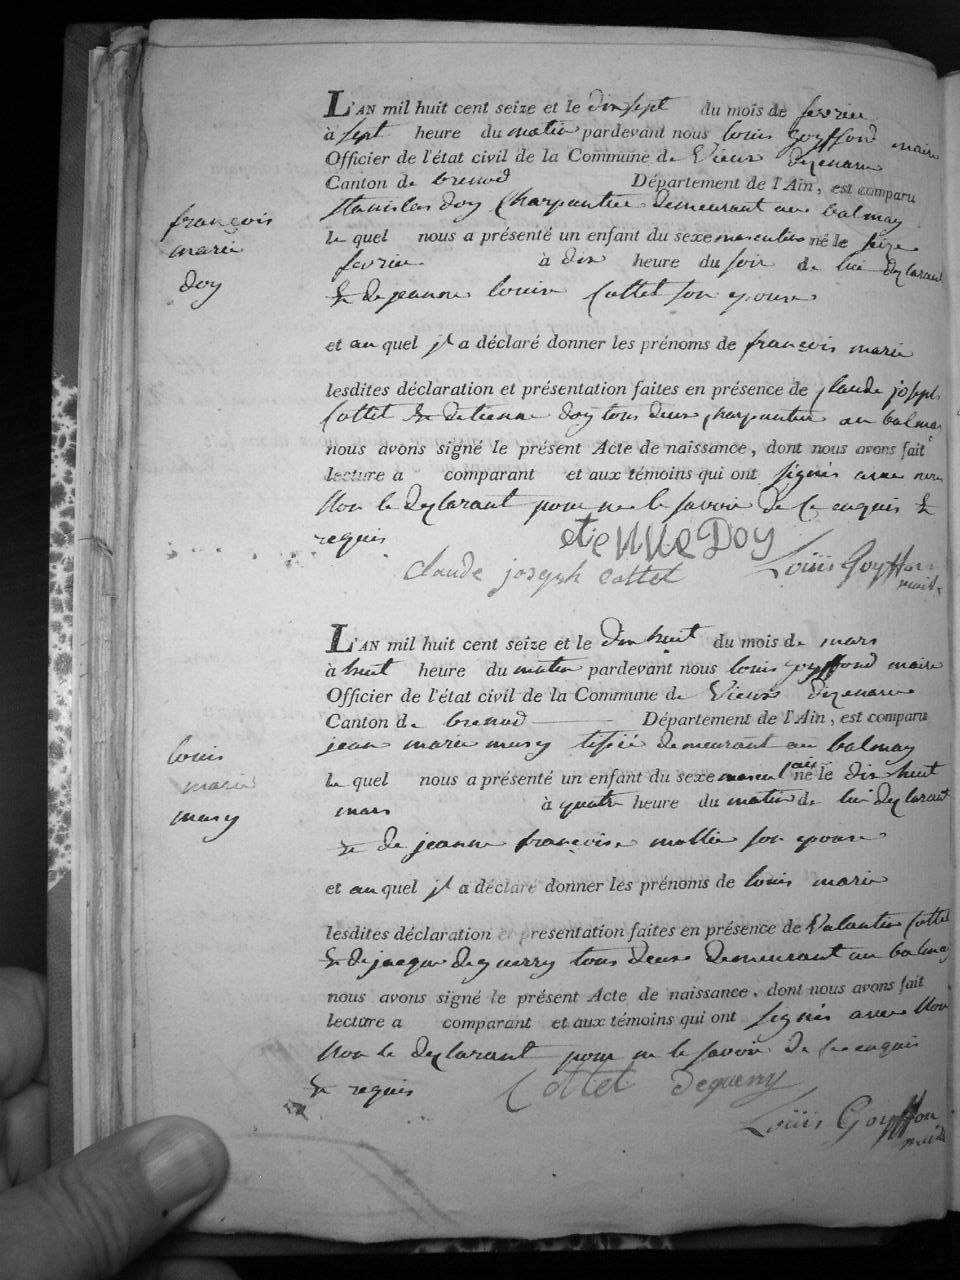 L'AN mil huit cent seize et le dix sept du mois de fevrier
à sept heure du matin pardevant nous louis goyffond maire
Officier de l'état civil de la Commune de Vieux dizenave
Canton de brenod Département de l'Ain, est comparu
françois
stanislas doy charpentier demeurant au balmay
marie
le quel nous a présenté un enfant du sexe masculin né le seize
fevrier à dix heure du soir de lui declarant
doy
& de jeanne louise Cottet son epouse
et au quel jl a déclaré donner les prénoms de françois marie
lesdites déclaration et présentation faites en présence de claude joseph
Cottet & detienne doy tous deux charpentier au balmay
nous avons signé le présent Acte de naissance, dont nous avons fait
lecture a comparant et aux témoins qui ont signés avec nous
Non le declarant pour ne le savoir de ce enquis &
requis
etieNNe Doy
claude joseph cottet Louïis Goyffon
maire
L'AN mil huit cent seize et le dix huit du mois de mars
à huit heure du matin pardevant nous louis goyffond maire
Officier de l'état civil de la Commune de Vieux dizenave
Canton de brenod Département de l'Ain, est comparu
louis
jean marie musy tissié demeurant au balmay
marie
le quel nous a présenté un enfant du sexe mascul né le dix huit
musy
mars à quatre heure du matin de lui declarant
& de jeanne françoise son epouse
et au quel jl a déclaré donner les prénoms de louis marie
lesdites déclaration et présentation faites en présence de Valentin Cottet
& de jacque deguerry tous deux demeurant au balmay
nous avons signé le présent Acte de naissance, dont nous avons fait
lecture a comparant et aux témoins qui ont signés avec Nou
Non le declarant pour ne le savoir de ce enquis
& requis Cottet Deguerry
Louïis Goyffon
maire